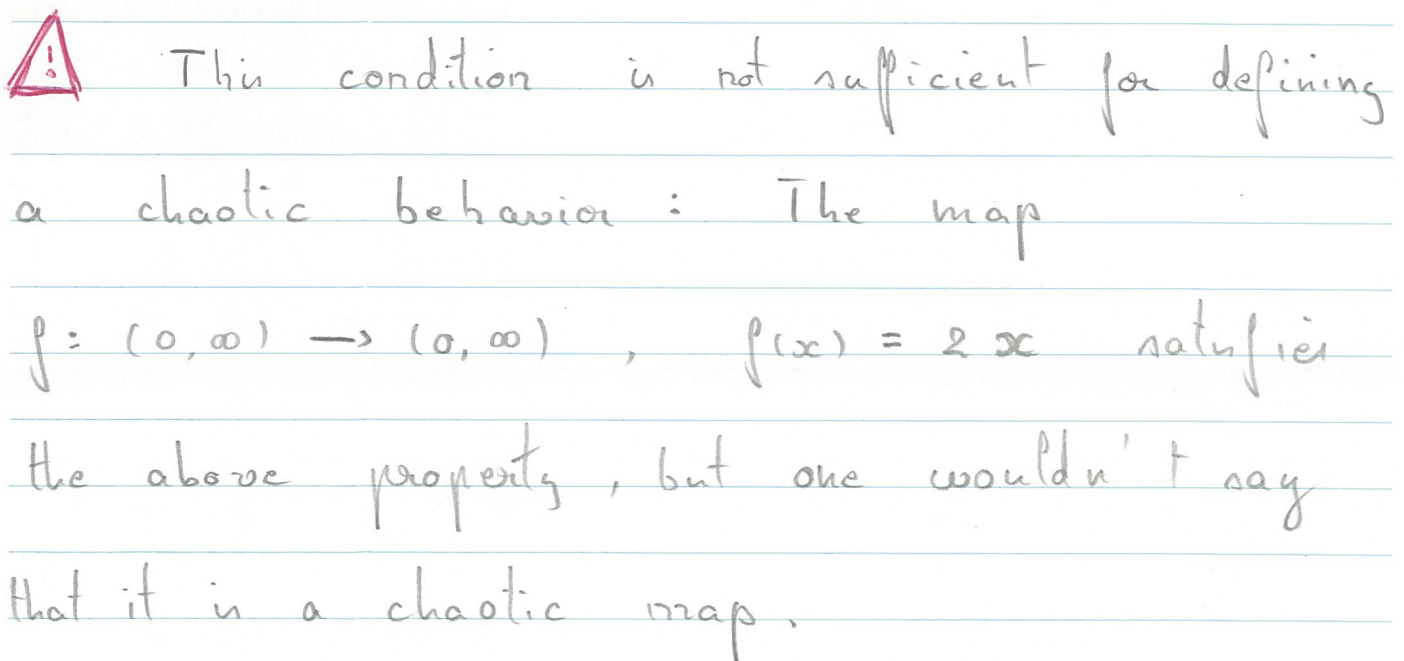 ! This condition is not sufficient for defining
a chaotic behavior : The map
f : (0, ∞) → (0, ∞) , f(x) = 2x satisfies
the above property, but one wouldn't say
that it is a chaotic map.